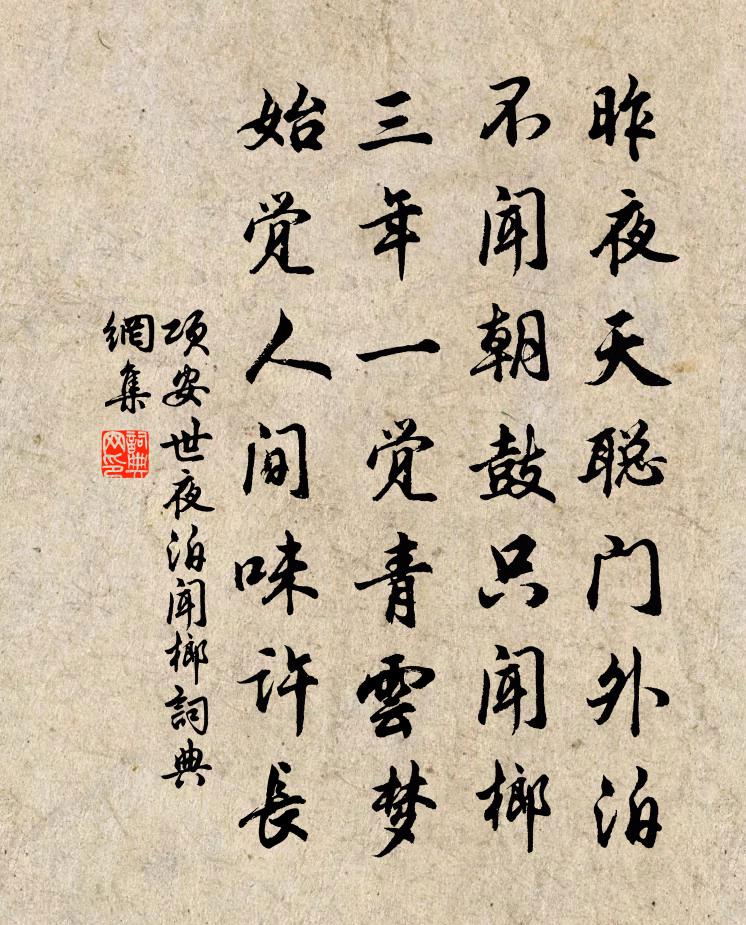 昨夜天聪门外泊
不闻朝鼓只闻榔
三年一觉青雲梦
始觉人间味许長
项安世夜泊闻榔詞典
網集
詞典网印